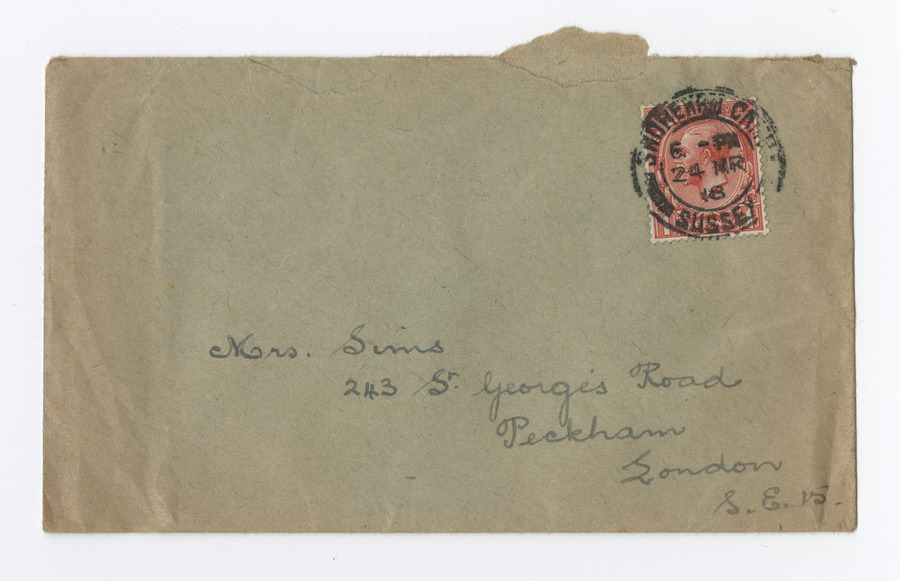 SHOREHAM CAMP
6 - PM
24 MR
18
SUSSEX
Mrs. Sims
243 St. George's Road
Peckham
London
S.E. 15.